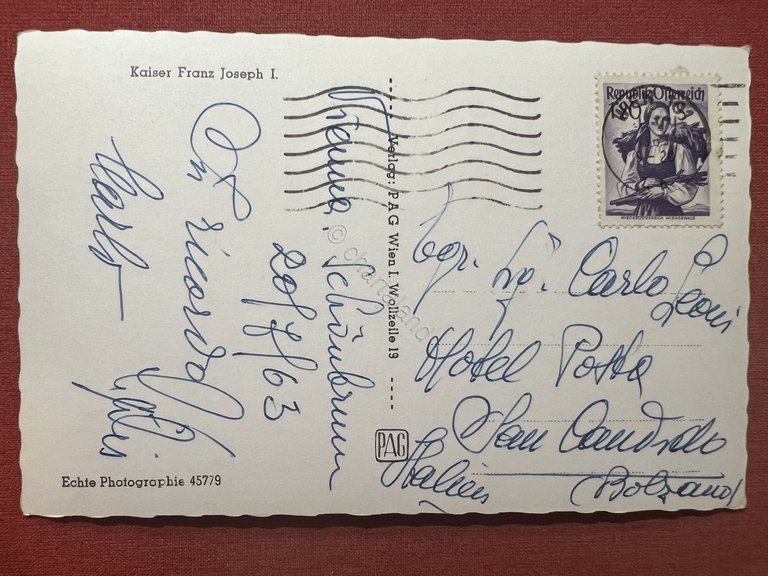 Kaiser Franz Joseph I.
Vienna, Schönbrunn
20/7/63
Un ricordo
Carlo
Echte Photographie 45779
Verlag: PAG Wien I, Wollzeile 19
PAG
© chartaland
Republik Österreich
NIEDERÖSTERREICH WIENERWALD
Egr. Sig. Carlo Leoni
Hotel Posta
San Candido
Bolzano
Italien